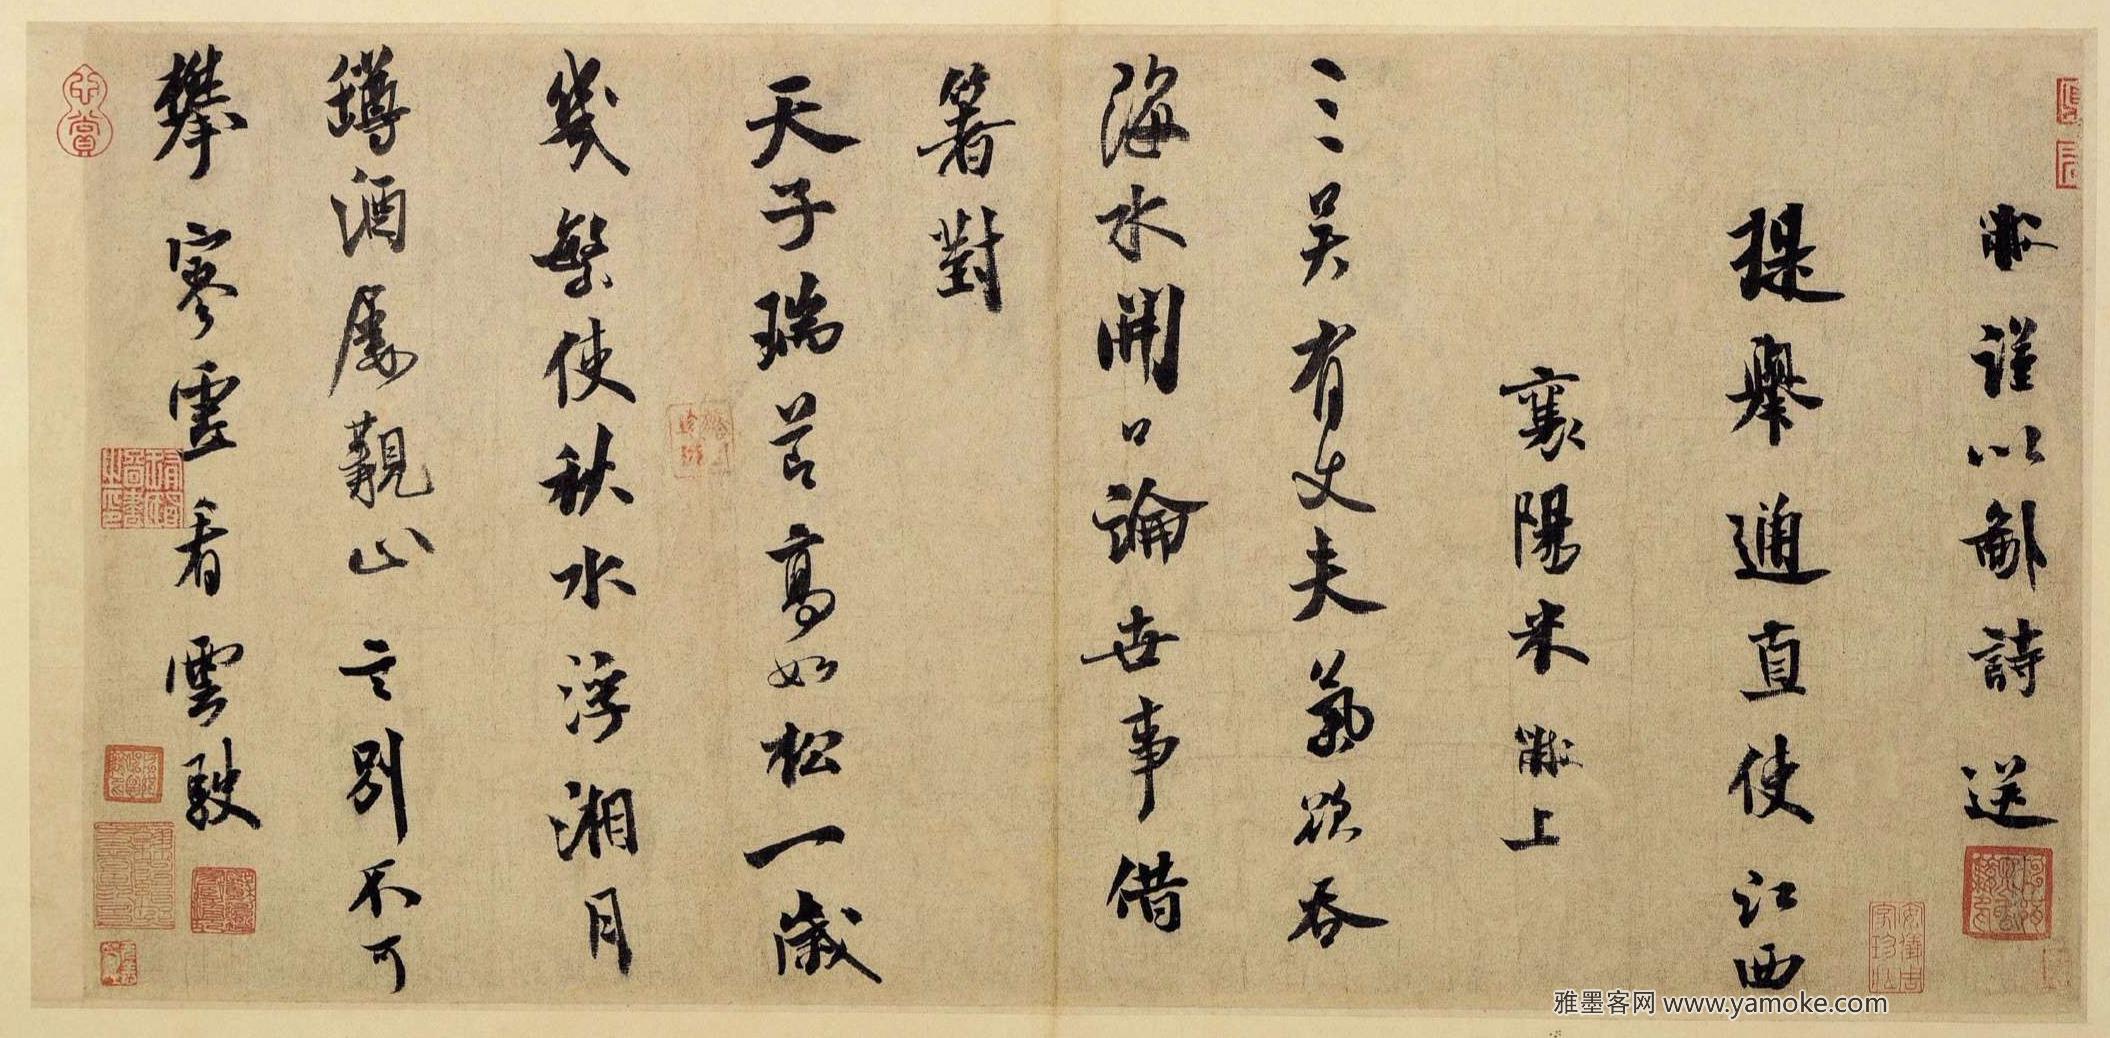 黻謹以鄙詩送
提舉通直使江西
襄陽米黻上
三吳有丈夫氣欲吞
海水開口論世事借
箸對
天子瑞節高如松一歲
幾繁使秋水浮湘月
罇酒屢覯止言別不可
攀寥虛看雲駛
心賞
安儀周家珍藏
雅墨客网 www.yamoke.com